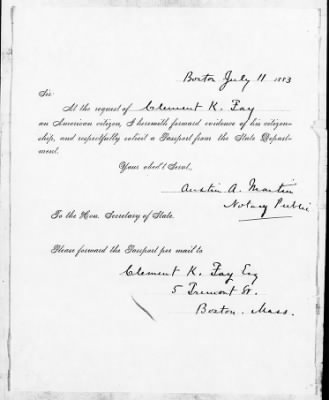 Boston July 11 1883
Sir:
At the request of Clement K. Fay
an American citizen, I herewith forward evidence of his citizen-
ship, and respectfully solicit a Passport from the State Depart-
ment.
Your obed't Servt,
Austin A. Martin
Notary Public
To the Hon. Secretary of State.
Please forward the Passport per mail to
Clement K. Fay Esq
5 Tremont St.
Boston. Mass.